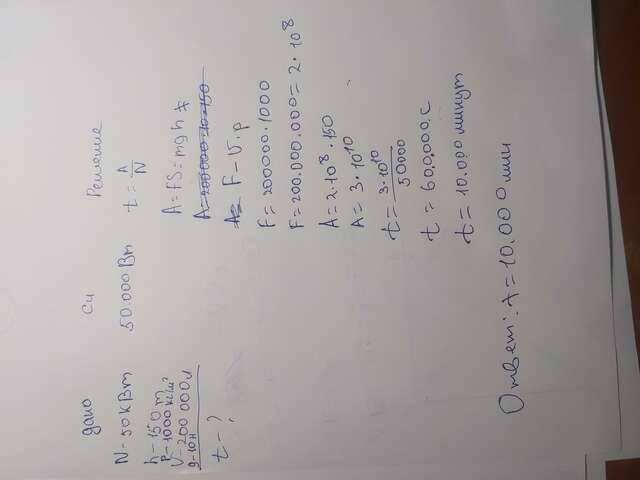 дано
N-50кВт
h-150м
P-1000 кг/м³
V-200 000л
g-10н
t-?
Си
50.000Вт
Решение
t=A/N
A=FS=mgh
A=200000·10·150
F-V·p
F=200000·1000
F=200.000.000=2·10⁸
A=2·10⁸·150
A=3·10¹⁰
t=3·10¹⁰/50000
t=600.000.с
t=10.000минут
Ответ: t=10.000мин